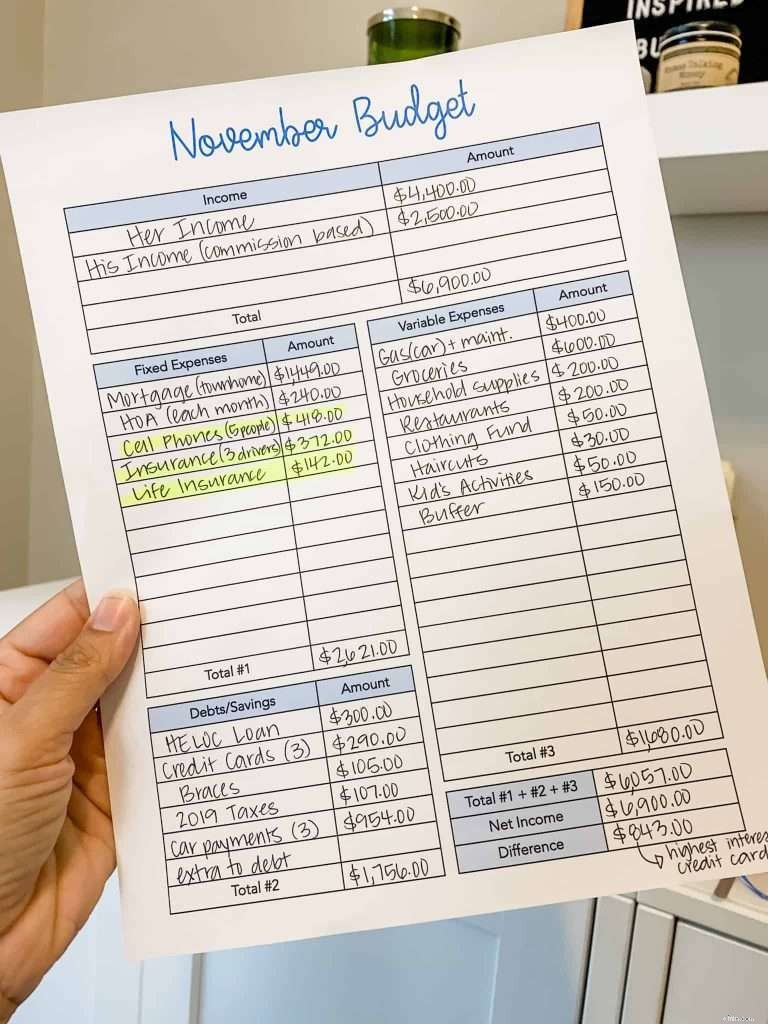 INSPIRED
BU
November Budget
Income Amount
Her Income $4,400.00
His Income (commission based) $2,500.00
Total $6,900.00
Fixed Expenses Amount
Mortgage (townhome) $1,449.00
HOA (each month) $240.00
Cell Phones (5 people) $418.00
Insurance (3 drivers) $372.00
Life Insurance $142.00
Total #1 $2621.00
Variable Expenses Amount
Gas(car) + maint. $400.00
Groceries $600.00
Household supplies $200.00
Restaurants $200.00
Clothing Fund $50.00
Haircuts $30.00
Kid's Activities $50.00
Buffer $150.00
Total #3 $1,680.00
Debts/Savings Amount
HELOC Loan $300.00
Credit Cards (3) $290.00
Braces $105.00
2019 Taxes $107.00
car payments (3) $954.00
extra to debt
Total #2 $1,756.00
Total #1 + #2 + #3 $6057.00
Net Income $6,900.00
Difference $843.00
highest interes
credit card